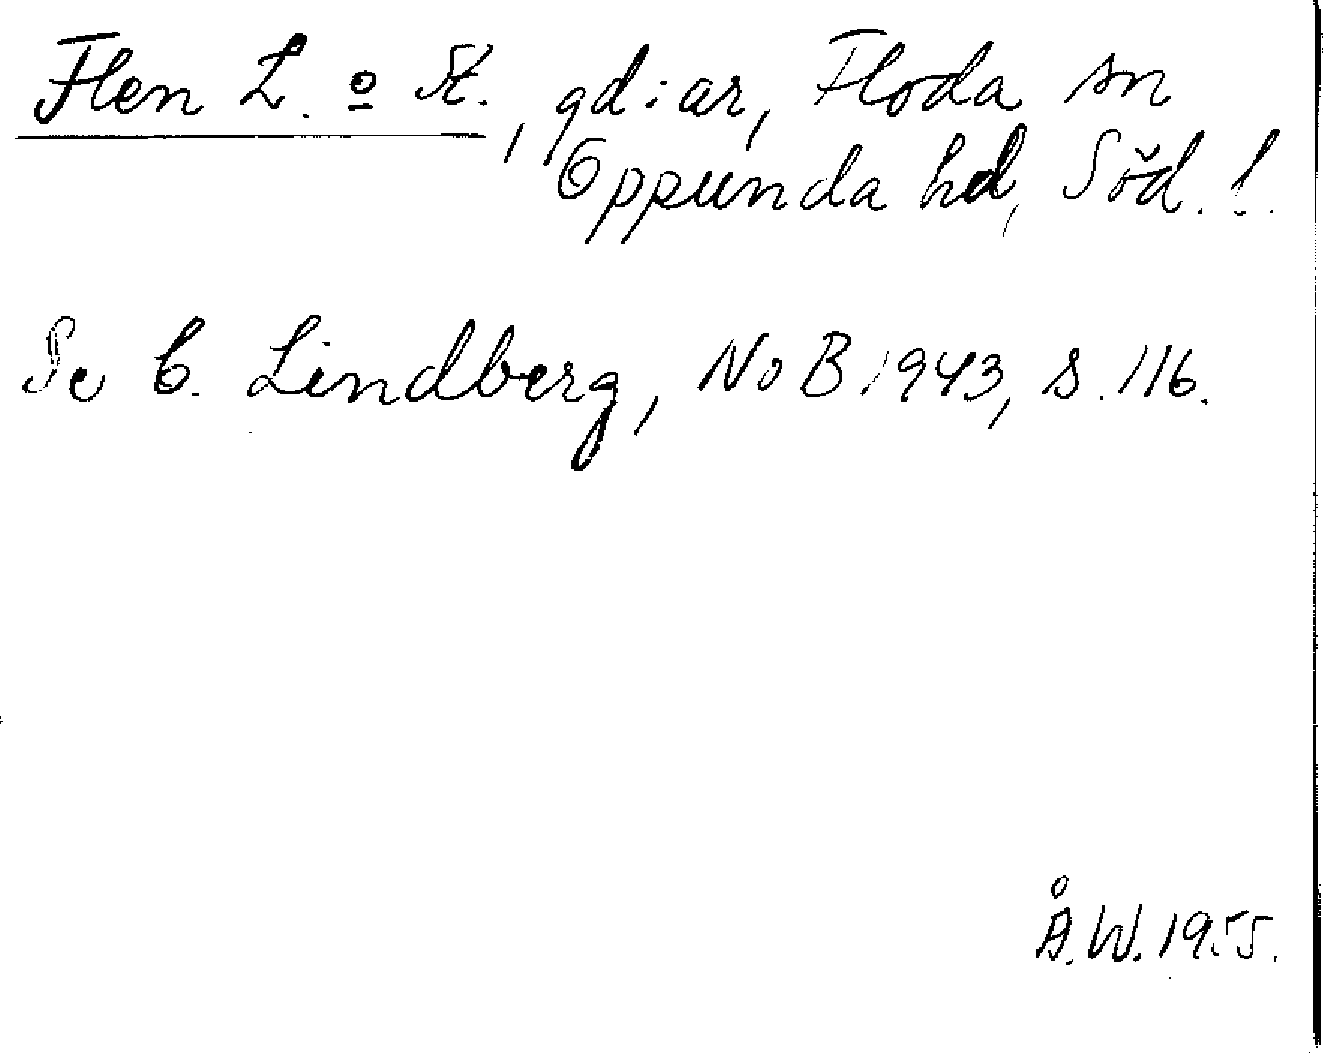 Flen L. o St., gd:ar, Floda sn
Oppunda hd, Söd. l.
Se C. Lindberg, NoB 1943, s. 116.
Å.W. 1955.